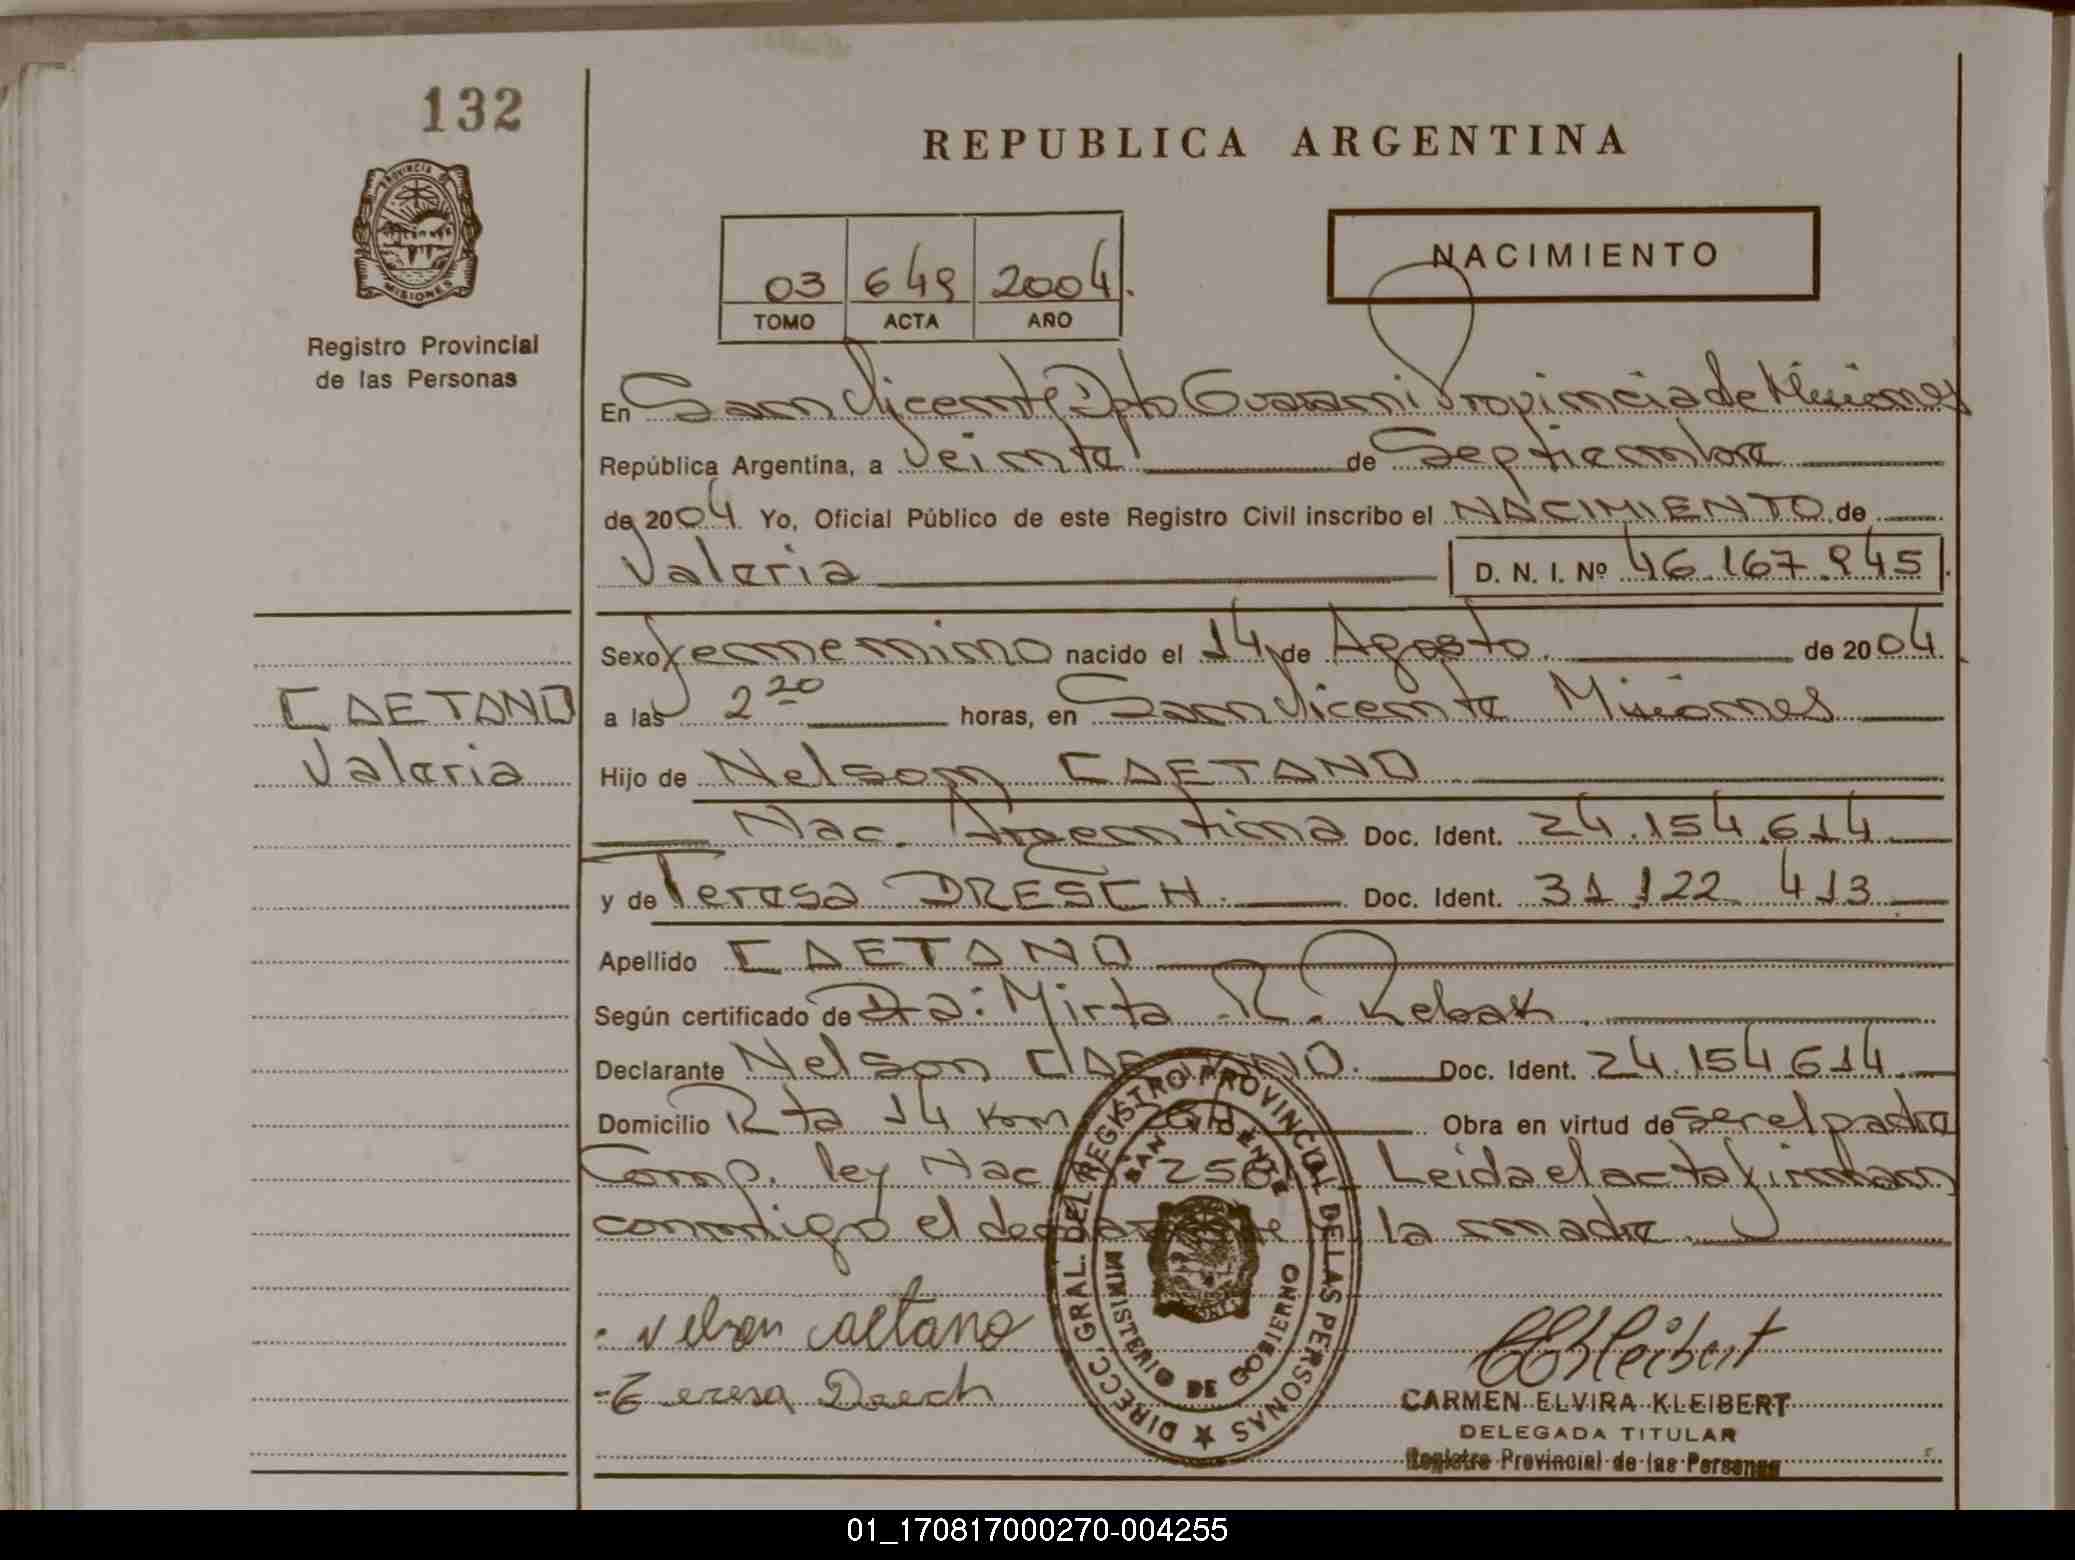 132
REPUBLICA ARGENTINA
PROVINCIA DE
MISIONES
Registro Provincial
de las Personas
NACIMIENTO
03 649 2004.
TOMO ACTA AÑO
En San Vicente Dpto Guarani Provincia de Misiones
República Argentina, a Veinte de Septiembre
de 2004. Yo, Oficial Público de este Registro Civil inscribo el NACIMIENTO de
Valeria D. N. I. Nº 46.167.845
Sexo femenino nacido el 14 de Agosto. de 2004.
CAETANO
Valeria
a las 2 20 horas, en San Vicente Misiones
Hijo de Nelson CAETANO
Nac. Argentina Doc. Ident. 24.154.614
y de Teresa DRESCH. Doc. Ident. 31.122 413
Apellido CAETANO
Según certificado de Dra: Mirta R. Rebak.
Declarante Nelson CAETANO. Doc. Ident. 24.154.614
Domicilio Rta 14 Km Obra en virtud de ser el padre
Comp. ley Nac Leida el acta firman
conmigo el declarante la madre.
Nelson Caetano
Teresa Dresch
DIRECC. GRAL. DEL REGISTRO PROVINCIAL DE LAS PERSONAS
SAN VICENTE
MINISTERIO DE GOBIERNO
CEKleibert
CARMEN ELVIRA KLEIBERT
DELEGADA TITULAR
Registro Provincial de las Personas
01_170817000270-004255